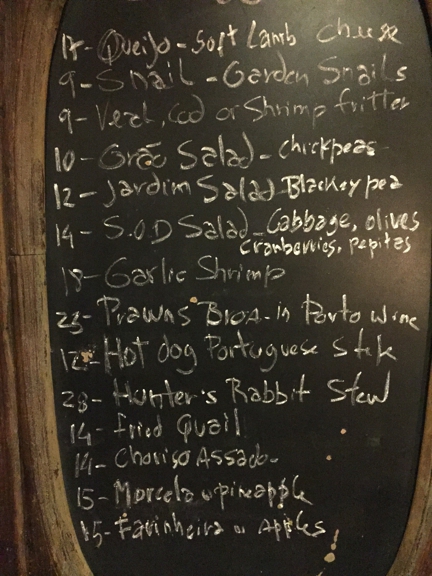 17- Queijo - Soft Lamb cheese
9- Snail - Garden Snails
9- Veal, Cod or Shrimp fritter
10- Grão Salad - chickpeas
12- Jardim Salad Blackeypea
14- S.O.D Salad - Cabbage, olives
cranberries, pepitas
18- Garlic Shrimp
23- Prawns Broa - in Porto wine
12- Hot dog Portuguese Style
28- Hunter's Rabbit Stew
14- fried Quail
14- Choriso Assado-
15- Morcela w pineapple
15- Farinheira w Apples